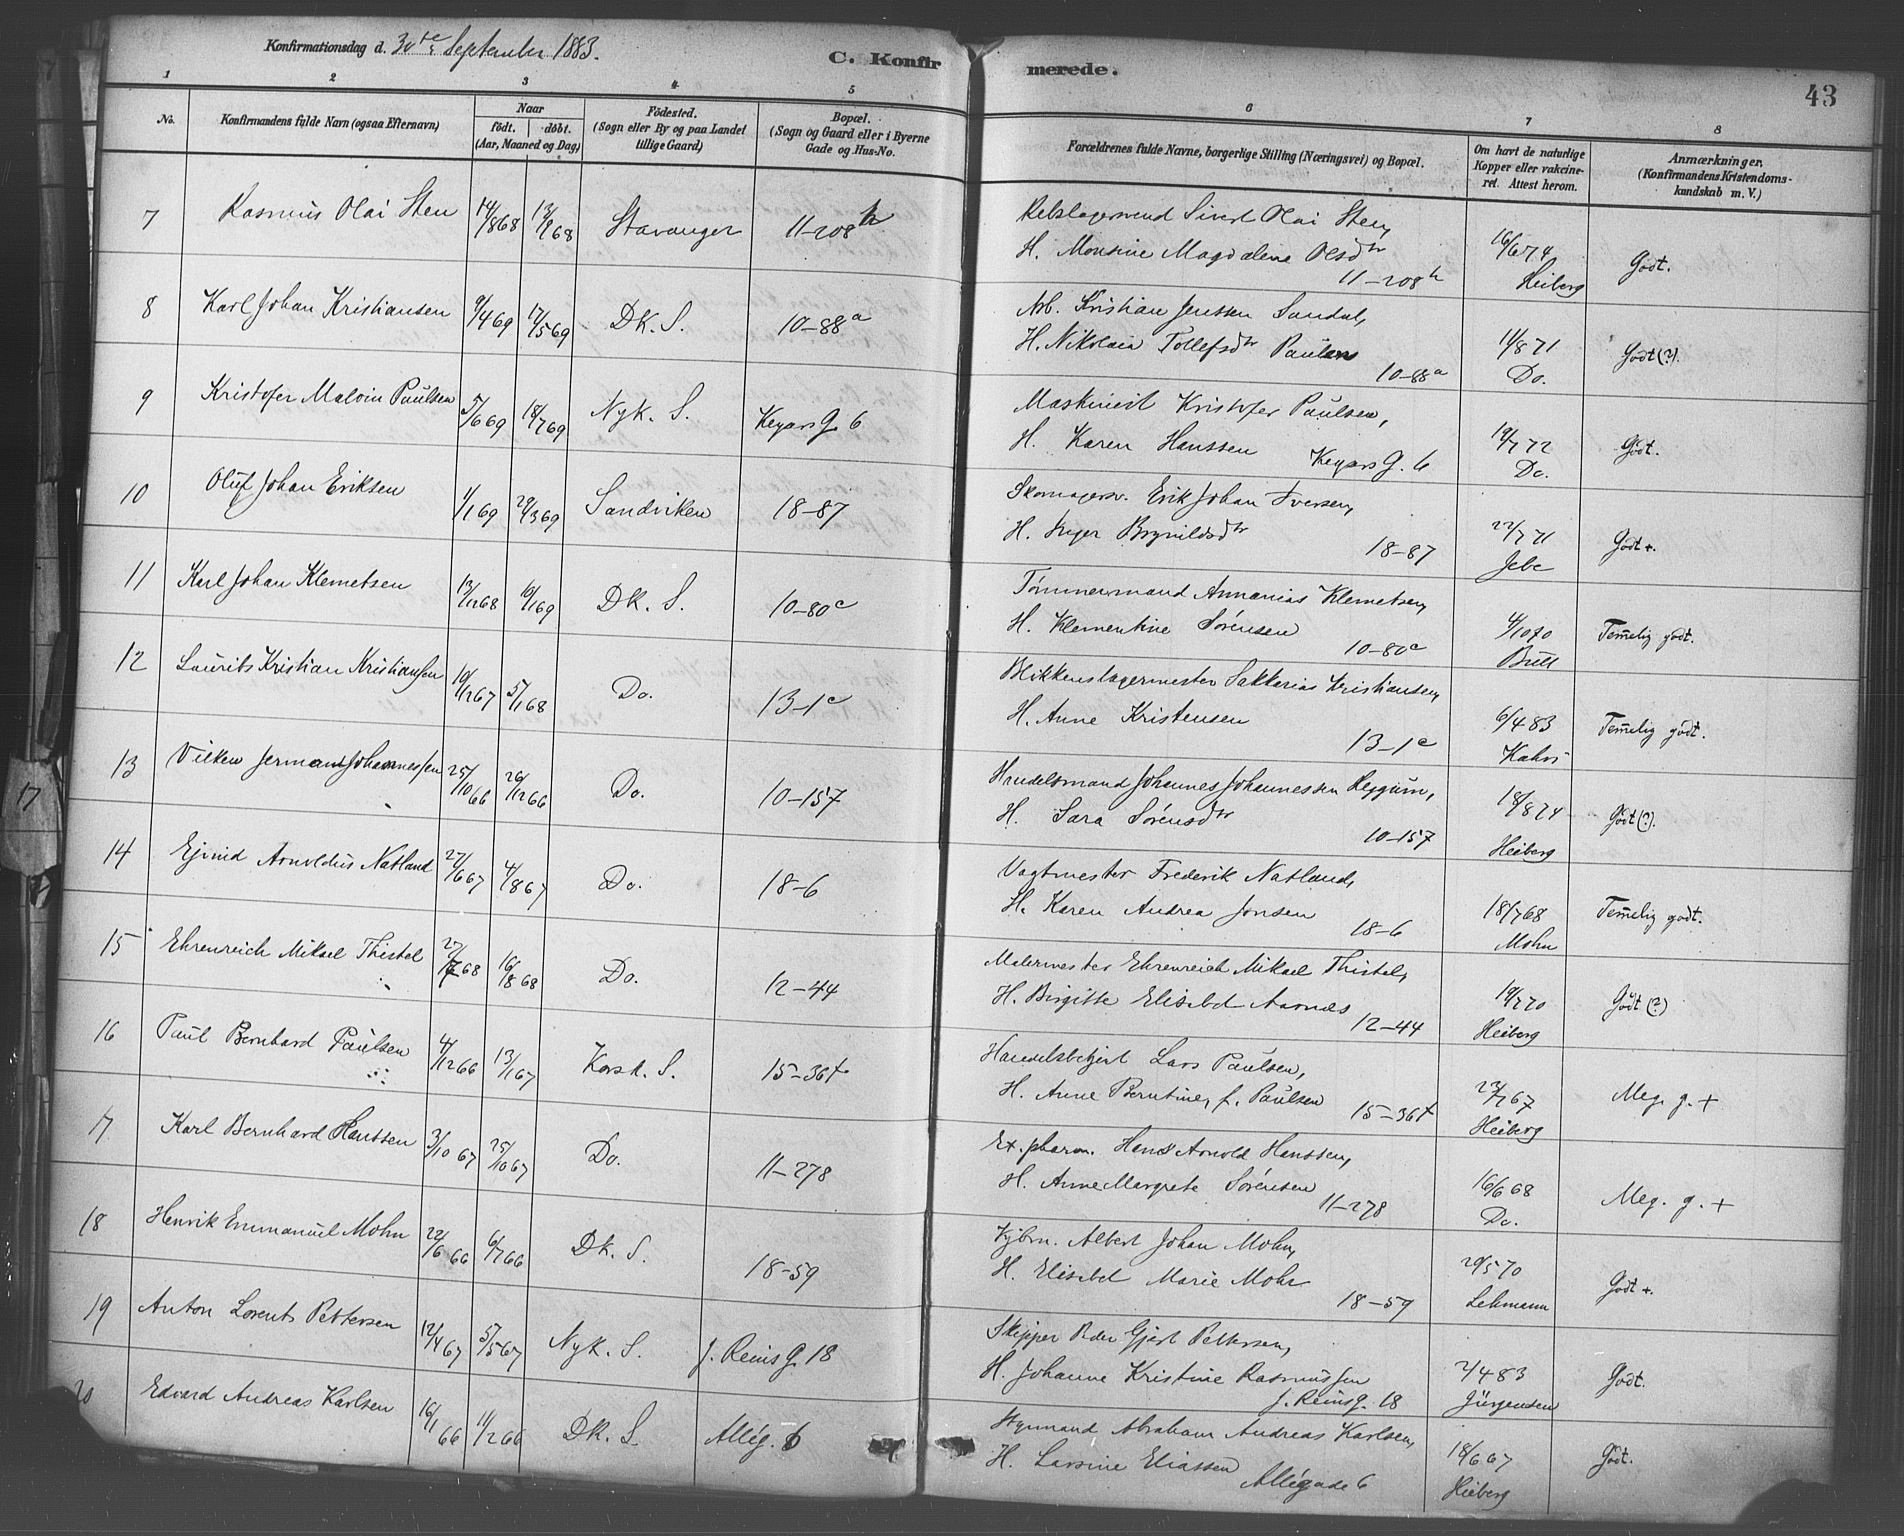 Konfirmationsdag d. 30te September 1883.
C. Konfirmerede.
43
1 2 3 4 5 6 7 8
No.
Konfirmandens fulde Navn (ogsaa Efternavn)
Naar
födt. döbt.
(Aar, Maaned og Dag)
Födested.
(Sogn eller By og paa Landet
tillige Gaard)
Bopæl.
(Sogn og Gaard eller i Byerne
Gade og Hus-No.
Forældrenes fulde Navne, borgerlige Stilling (Næringsvei) og Bopæl.
Om havt de naturlige
Kopper eller vakcine-
ret. Attest herom.
Anmærkninger,
(Konfirmandens Kristendoms-
kundskab m. V.)
7 Rasmus Olai Sten 14/8 68 13/9 68 Stavanger 11-208h Rebslagersvend Sivert Olai Sten, 16/6 74 Godt.
H. Monsine Magdalene Olsdtr 11-208h Heiberg
8 Karl Johan Kristiansen 9/4 69 17/5 69 DK. S. 10-88a Arb. Kristian Jenssen Sandal, 11/8 71 Godt(?).
H. Nikolaia Tollefsdtr Paulsen 10-88a Do.
9 Kristofer Malvin Paulsen 5/6 69 18/7 69 Nyk. S. Keyars G. 6 Maskinist Kristofer Paulsen, 19/7 72 Godt.
H. Karen Hanssen Keyars G. 6 Do.
10 Oluf Johan Eriksen 1/1 69 29/3 69 Sandviken 18-87 Skomagersv. Erik Johan Iversen, 22/7 71 Godt +.
H. Inger Brynildsdtr 18-87 Jebe
11 Karl Johan Klemetsen 13/12 68 10/1 69 DK. S. 10-80c Tømmermand Annanias Klemetsen, 4/10 70 Temelig godt.
H. Klementine Sørensen 10-80c Bull
12 Laurits Kristian Kristiansen 10/12 67 5/1 68 Do. 13-1c Blikkenslagermester Sakkarias Kristiansen, 6/4 83 Temelig godt.
H. Anne Kristensen 13-1c Kahrs
13 Vilken Jerman Johannessen 25/10 66 26/12 66 Do. 10-157 Handelsmand Johannes Johannessen Reggum, 18/8 74 Godt(?).
H. Sara Sørensdtr 10-157 Heiberg
14 Ejvind Arnoldus Natland 27/6 67 4/8 67 Do. 18-6 Vagtmester Frederik Natland, 18/7 68 Temelig godt.
H. Karen Andrea Jonsen 18-6 Mohn
15 Ehrenreich Mikael Thistel 27/ 68 16/8 68 Do. 12-44 Malermester Ehrenreich Mikael Thistel, 19/7 70 Godt(?)
H. Birgitte Elisabet Aarnæs 12-44 Heiberg
16 Paul Bernhard Paulsen 4/12 66 13/1 67 Korsk. S. 15-36 Handelsbetjent Lars Paulsen, 23/7 67 Meg. g. +
H. Anne Berntine, f. Paulsen 15-36 Heiberg
17 Karl Bernhard Hanssen 3/10 67 25/10 67 Do. 11-278 Ex. pharm. Hans Arnold Hanssen, 16/6 68 Meg. g. +
H. Anne Margrete Sørensen 11-278 Do.
18 Henrik Emmanuel Mohn 22/6 66 6/7 66 Dk. S. 18-59 Kjbm. Albert Johan Mohn, 20/5 70 Godt +.
H. Elisabet Marie Mohr 18-59 Lehmann
19 Anton Lorents Pettersen 12/4 67 5/5 67 Nyk. S. J. Reins G. 18 Skipper Peder Gjert Pettersen, 2/4 83 Godt.
H. Johanne Kristine Rasmussen J. Reins G. 18 Jürgensen
20 Edvard Andreas Karlsen 16/1 66 11/2 66 DK. S. Allég. 6 Styrmand Abraham Andreas Karlsen, 18/6 67 Godt.
H. Larsine Eliassen Allégade 6 Heiberg
17